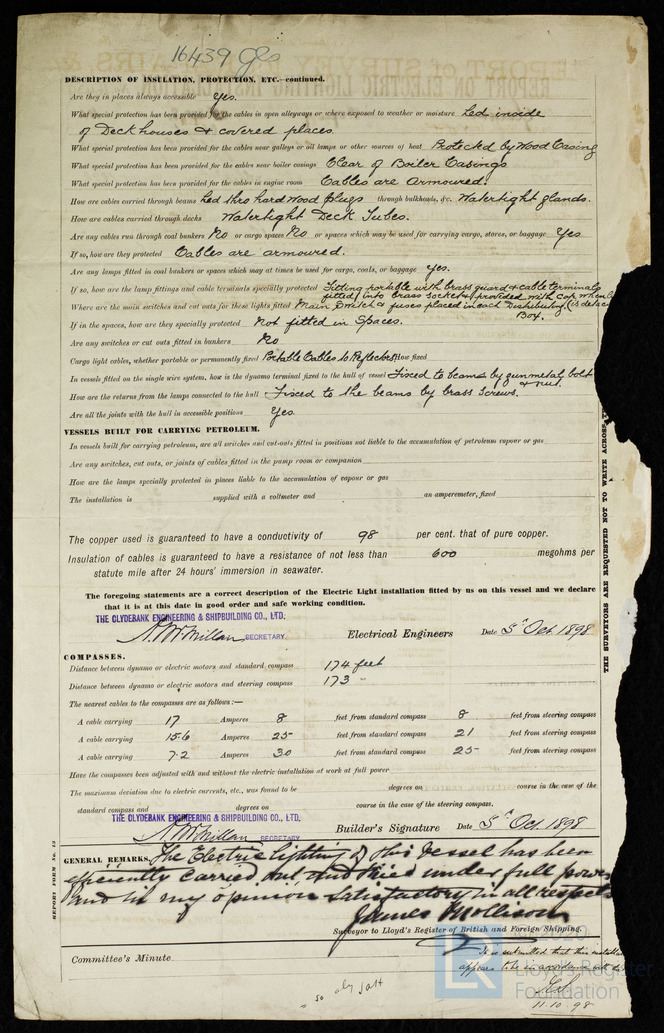 16439 Gls
DESCRIPTION OF INSULATION, PROTECTION, ETC.—continued.
Are they in places always accessible Yes.
What special protection has been provided for the cables in open alleyways or where exposed to weather or moisture Led inside
of Deck houses & covered places
What special protection has been provided for the cables near galleys or oil lamps or other sources of heat Protected by Wood Casing
What special protection has been provided for the cables near boiler casings Clear of Boiler Casings
What special protection has been provided for the cables in engine room Cables are armoured.
How are cables carried through beams Led thro hard Wood plugs through bulkheads, &c. Watertight glands.
How are cables carried through decks Watertight Deck Tubes.
Are any cables run through coal bunkers No or cargo spaces No or spaces which may be used for carrying cargo, stores, or baggage Yes
If so, how are they protected Cables are armoured.
Are any lamps fitted in coal bunkers or spaces which may at times be used for cargo, coals, or baggage Yes.
If so, how are the lamp fittings and cable terminals specially protected Fitting portable with brass guard & cable terminals
fitted into brass socket & provided with cap when
Where are the main switches and cut outs for these lights fitted Main Switch & fuses placed in each Distributing (is detac
Box.
If in the spaces, how are they specially protected Not fitted in Spaces.
Are any switches or cut outs fitted in bunkers No
Cargo light cables, whether portable or permanently fixed Portable Cables to Reflectors How fixed
In vessels fitted on the single wire system, how is the dynamo terminal fixed to the hull of vessel Fixed to beams by gunmetal bolt
& nut.
How are the returns from the lamps connected to the hull Fixed to the beams by brass screws.
Are all the joints with the hull in accessible positions Yes
VESSELS BUILT FOR CARRYING PETROLEUM.
In vessels built for carrying petroleum, are all switches and cut-outs fitted in positions not liable to the accumulation of petroleum vapour or gas
Are any switches, cut outs, or joints of cables fitted in the pump room or companion
How are the lamps specially protected in places liable to the accumulation of vapour or gas
The installation is supplied with a voltmeter and an amperemeter, fixed
The copper used is guaranteed to have a conductivity of 98 per cent. that of pure copper.
Insulation of cables is guaranteed to have a resistance of not less than 600 megohms per
statute mile after 24 hours' immersion in seawater.
The foregoing statements are a correct description of the Electric Light installation fitted by us on this vessel and we declare
that it is at this date in good order and safe working condition.
THE CLYDEBANK ENGINEERING & SHIPBUILDING CO., LTD.
A. McMillan SECRETARY. Electrical Engineers Date 5th Oct. 1898
COMPASSES.
Distance between dynamo or electric motors and standard compass 174 feet
Distance between dynamo or electric motors and steering compass 173 "
The nearest cables to the compasses are as follows:—
A cable carrying 17 Amperes 8 feet from standard compass 8 feet from steering compass
A cable carrying 15.6 Amperes 25 feet from standard compass 21 feet from steering compass
A cable carrying 7.2 Amperes 30 feet from standard compass 25 feet from steering compass
Have the compasses been adjusted with and without the electric installation at work at full power
The maximum deviation due to electric currents, etc., was found to be degrees on course in the case of the
standard compass and degrees on course in the case of the steering compass.
THE CLYDEBANK ENGINEERING & SHIPBUILDING CO., LTD.
A. McMillan SECRETARY Builder's Signature Date 5th Oct. 1898
GENERAL REMARKS. The Electric lighting of this Vessel has been
efficiently carried out and tried under full power
and in my opinion satisfactory in all respects
James Mollison
Surveyor to Lloyd's Register of British and Foreign Shipping.
It is submitted that this installa
appears to be in accordance with
Committee's Minute
11.10.98
REPORT FORM No. 13
THE SURVEYORS ARE REQUESTED NOT TO WRITE ACROSS
LR
Lloyd's Register
Foundation